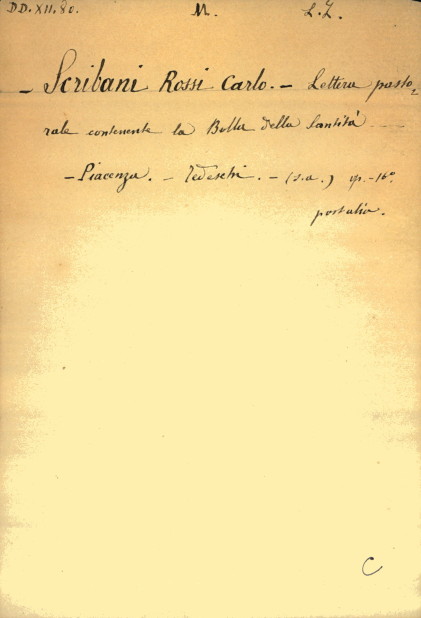 DD.XII.80. M. L.Z.
- Scribani Rossi Carlo. - Lettera pasto=
rale contenente la Bolla della Santità
- Piacenza. - Tedeschi. - (s.a.) op. - 16°
C